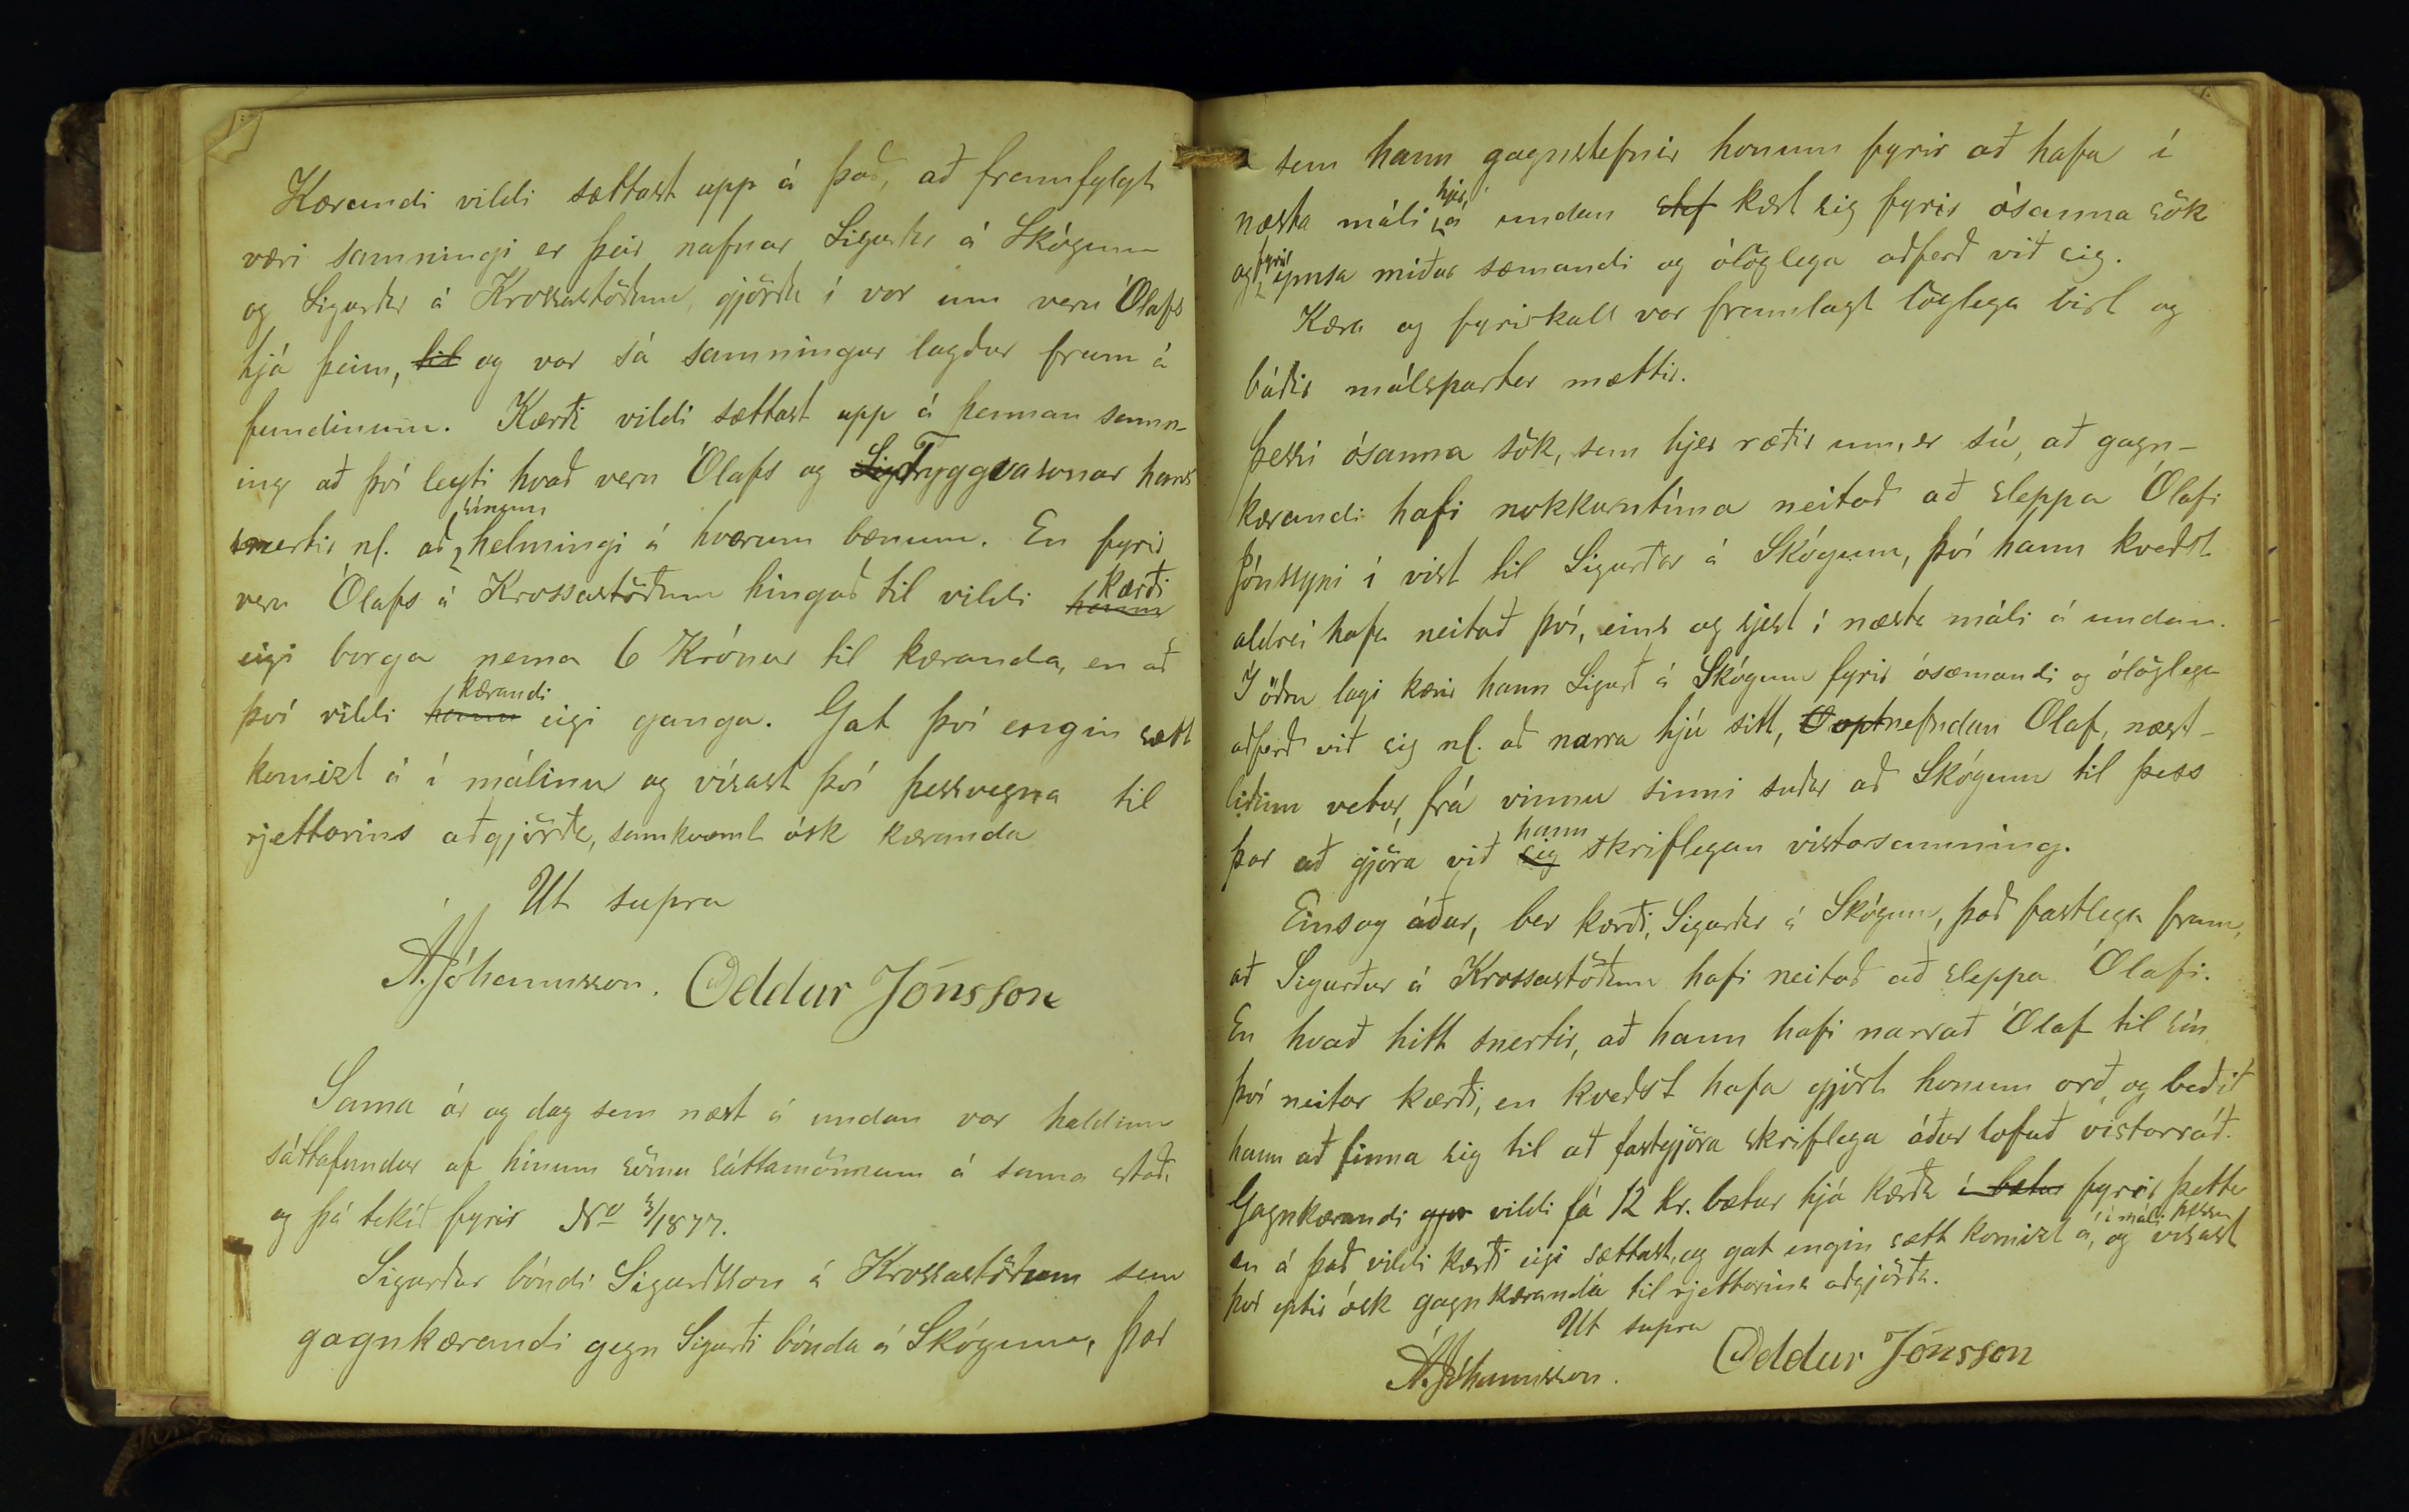 Kærandi vildi sættast upp á það, að framfylgt
væri samningi er þeir nafnar Sigurðr á Skógum
og Sigurðr á Krossastöðum, gjörðu í vor um veru Ólafs
hjá þeim, til og var sá samningur lagður fram á
fundinum. Kærði vildi sættast upp á þennan samn-
ing að því leyti hvað veru Ólafs og Sig Tryggva sonar hans
snertir nl. að sínum helmingi á hvorum bænum. En fyrir
veru Ólafs á Krossastöðum hingað til vildi hann kærði
eigi borga nema 6 Krónur til kæranda, en að
því vildi hann kærandi eigi ganga. Gat því engin sætt
komizt á í málinu og vísast því þessvegna til
rjettarins aðgjörða, samkvæmt ósk kæranda
Ut supra
Á. Jóhannsson. Oddur Jónsson
Sama ár og dag sem næst á undan var haldinn
sáttafundur af hinum sömu sáttamönnum á sama stað,
og þá tekið fyrir No 3/1877.
Sigurður bóndi Sigurðsson á Krossastöðum sem
gagnkærandi gegn Sigurði bónda á Skógum, þar
sem hann gagnstefnir honum fyrir að hafa í
næsta máli hjer á undan stef kært sig fyrir ósanna sök
og fyrir ýmsa miður sæmandi og ólöglega aðferð við sig.
Kæra og fyrirkall var framlagt löglega birt og
báðir málspartar mættir.
Þessi ósanna sök, sem hjer ræðir um, er sú, að gagn-
kærandi hafi nokkurntíma neitað að sleppa Ólafi
Jónssyni í vist til Sigurðar á Skógum, því hann kveðst
aldrei hafa neitað því, eins og sjest í næsta máli á undan.
Í öðru lagi kærir hann Sigurð á Skógum fyrir ósæmandi og ólöglega
aðferð við sig nl. að narra hjú sitt, opt nefndan Ólaf, næst-
liðinn vetur, frá vinnu sinni suður að Skógum til þess
þar að gjöra við sig hann skriflegan vistarsamning.
Eins og áður, ber kærði, Sigurðr á Skógum, það fastlega fram,
að Sigurður á Krossastöðum hafi neitað að sleppa Ólafi.
En hvað hitt snertir, að hann hafi narrað Ólaf til sín
því neitar kærði, en kveðst hafa gjört honum orð, og beðið
hann að finna sig til að fastgjöra skriflega áður lofað vistarráð.
Gagnkærandi gjör vildi fá 12 kr. bætur hjá kærða í bætur fyrir þetta
en á það vildi kærði eigi sættast, og gat engin sætt komizt á, í máli þessu og vísast
því eptir ósk gagnkæranda til rjettarins aðgjörða.
Ut supra
Á. Jóhannsson. Oddur Jónsson